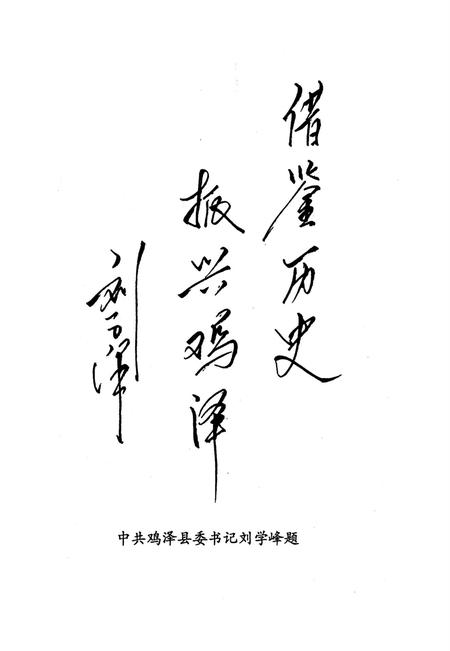 借鉴历史
振兴鸡泽
刘学峰
中共鸡泽县委书记刘学峰题